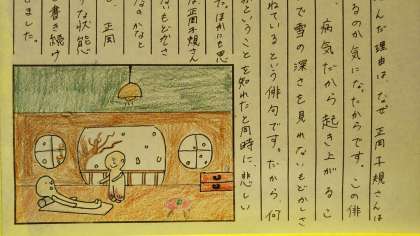 んだ理由は、なぜ正岡子規さんは
るのか気になったからです。この俳
病気だから起き上がるこ
で雪の深さを見れないもどかしさ
ねているという俳句です。だから何
ということを知れたと同時に、悲しい
た。ほかにも思
は正岡子規さん
ないもどかさ
なのかなと
、正岡
うな状態
書き続け
しました。